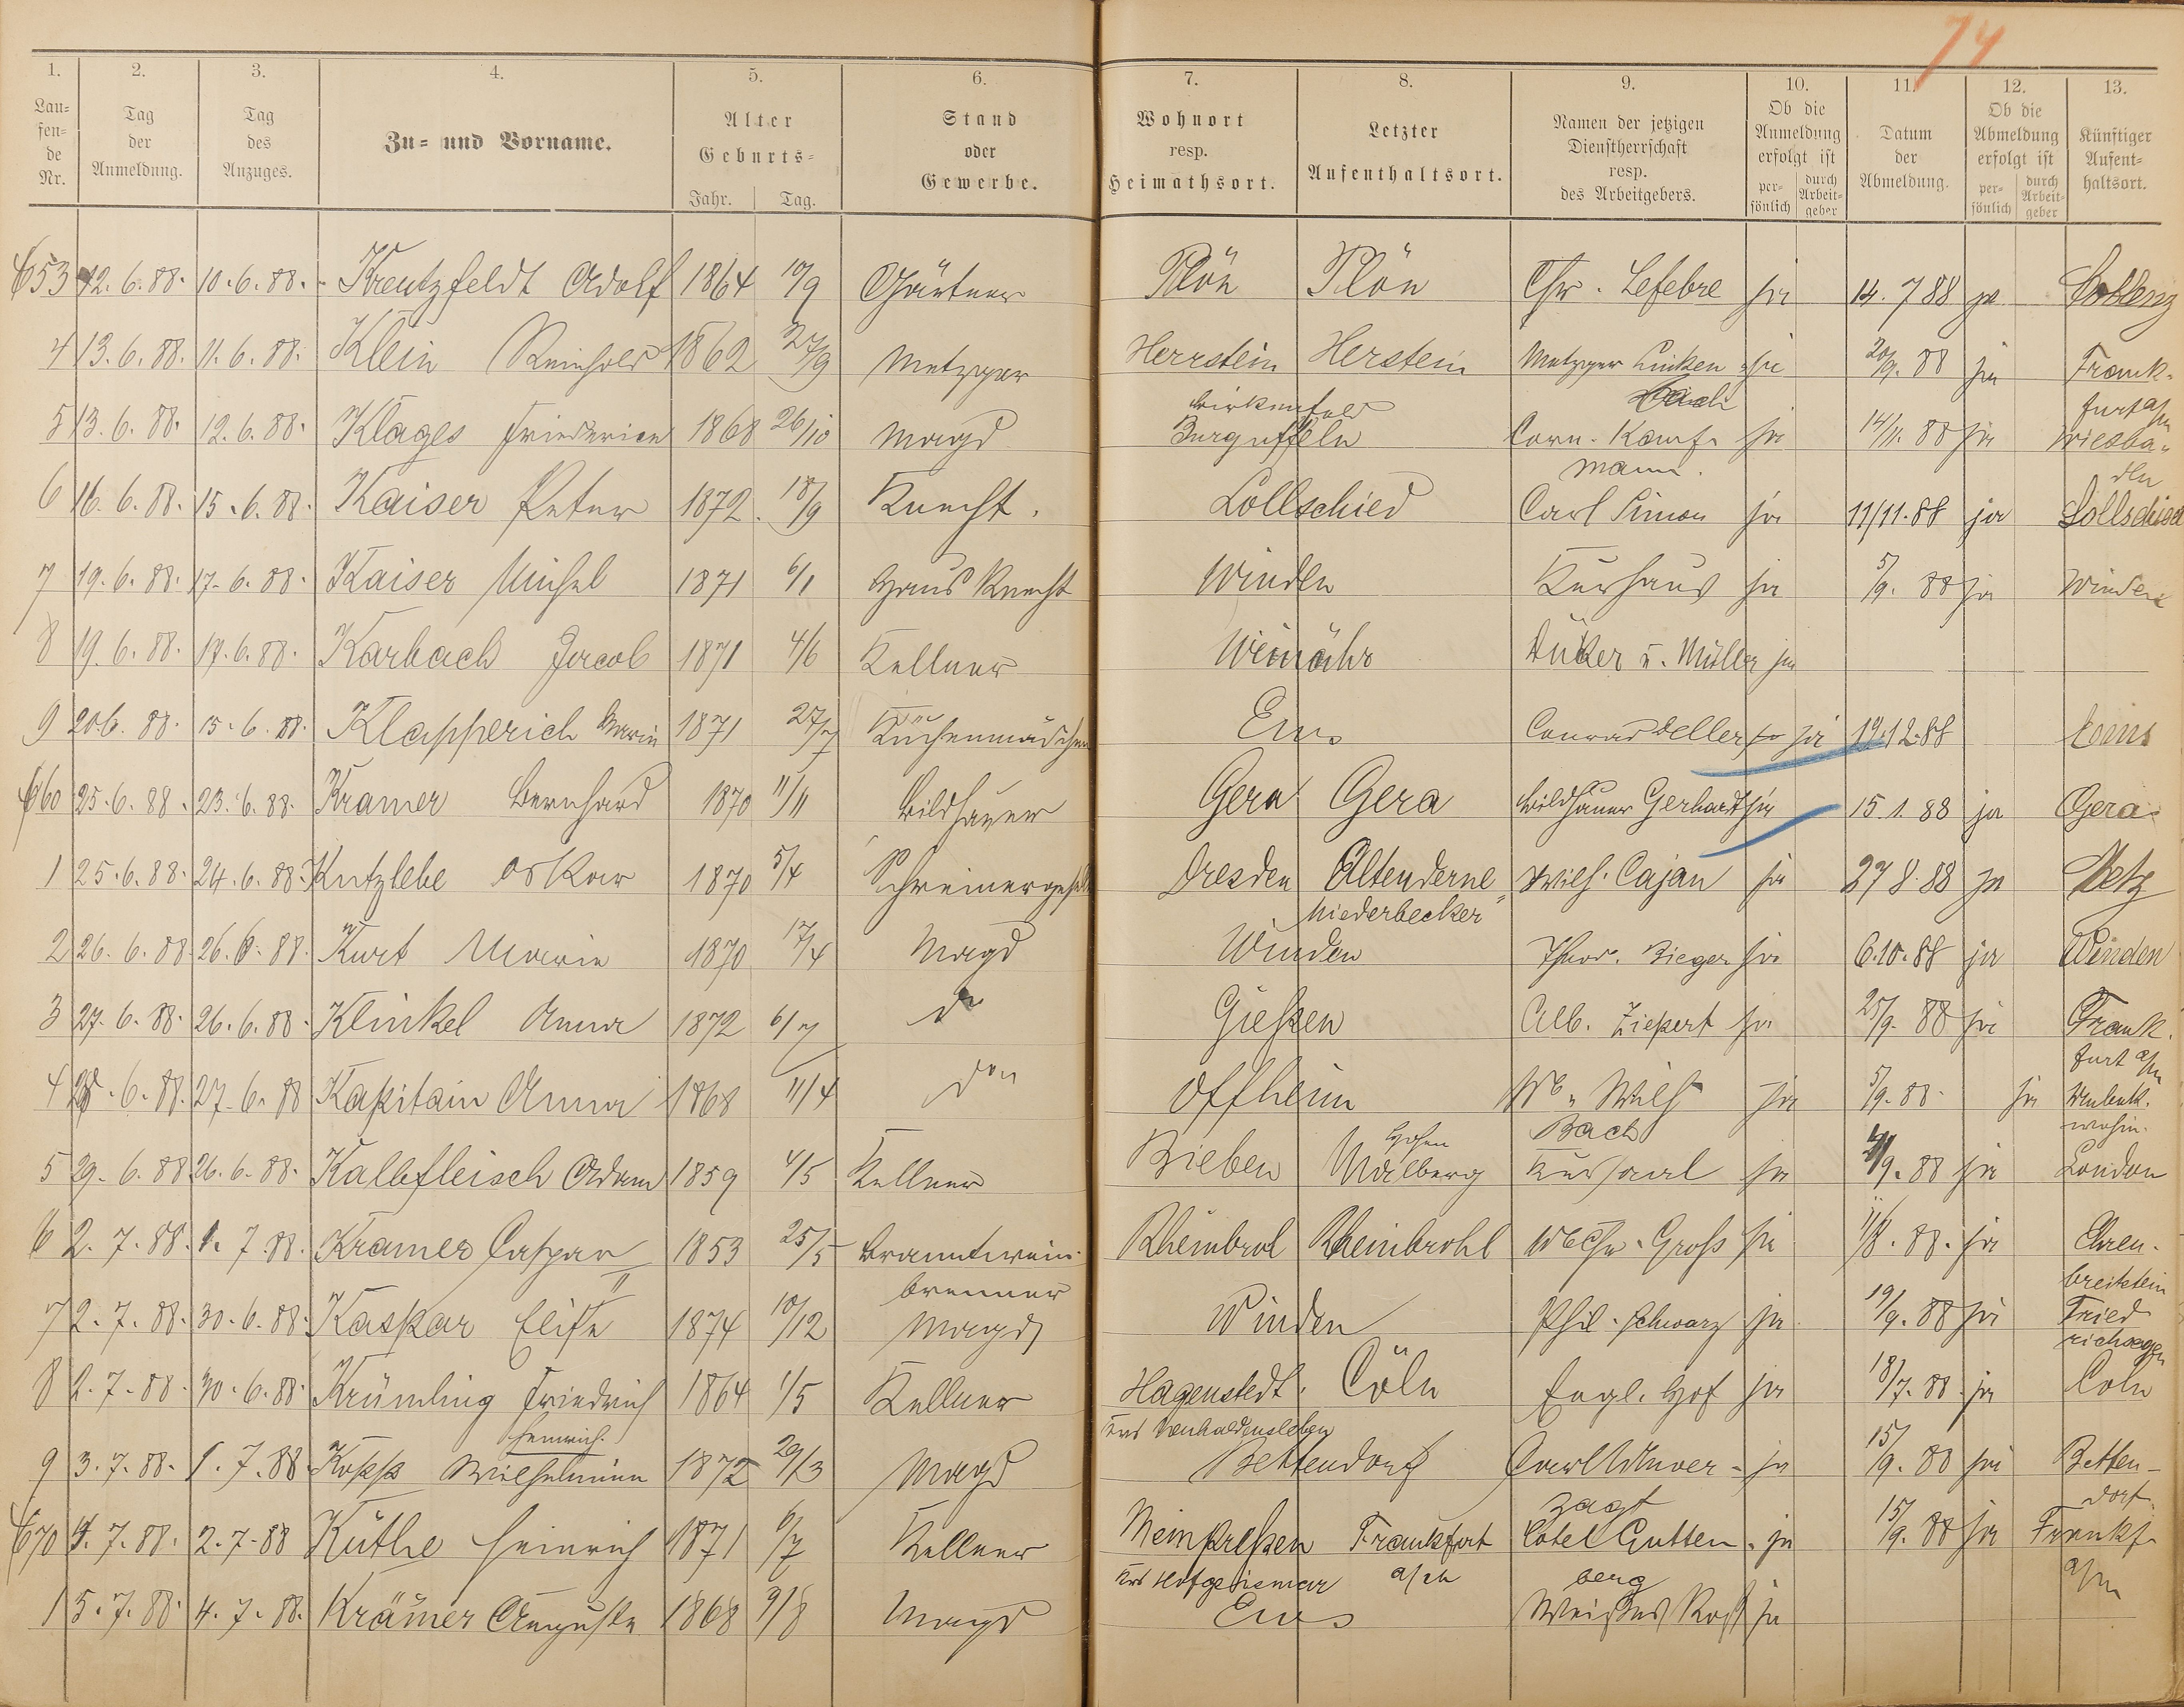 74
1. 2. 3. 4. 5. 6. 7. 8. 9. 10. 11. 12. 13.
Lau=fen=de Nr. Tag der Anmeldung. Tag des Anzuges. Zu= und Vorname. Alter Geburts= Jahr. Tag. Stand oder Gewerbe. Wohnort resp. Heimathsort. Letzter Aufenthaltsort. Namen der jetzigen Dienstherrschaft resp. des Arbeitgebers. Ob die Anmeldung erfolgt ist per=sönlich durch Arbeit=geber Datum der Abmeldung. Ob die Abmeldung erfolgt ist per=sönlich durch Arbeit=geber Künftiger Aufent=haltsort.
653 12. 6. 88. 10. 6. 88. Kreutzfeldt Adolf 1864 10/9 Gärtner Plön Plön Chr. Lefebre ja 14. 7 88 ja Coblenz
4 13. 6. 88. 11. 6. 88. Klein Reinhold 1862 27/9 Metzger Herrstein Herstein Metzger Linken= ja 20/9. 88 ja Frank-
Birkenfeld bach furt a/m
5 13. 6. 88. 12. 6. 88. Klages Friederien 1868 26/10 Magd Burguffeln Corn. Kauf= ja 14/11. 88 ja Wiesba=
mann. den
6 16. 6. 88. 15. 6. 88. Kaiser Peter 1872. 18/9 Knecht. Lollschied Carl Simon ja 11/11. 88 ja Lollschied
7 19. 6. 88. 17. 6. 88. Kaiser Michel 1871 6/1 Hausknecht Winden Kurhaus ja 5/9. 88 ja Winden
8 19. 6. 88. 17. 6. 88. Karbach Jacob 1871 4/6 Kellner Weinähr Düker u. Müller ja
9 20. 6. 88. 15. 6. 88. Klapperich Maria 1871 27/7 Küchenmädchen Ems Conrad Deller ja 19. 12. 88 Ems
660 25. 6. 88. 23. 6. 88. Kramer Bernhard 1870 11/11 Bildhauer Gera Gera Bildhauer Gerhardt ja 15. 1. 88 ja Gera
1 25. 6. 88. 24. 6. 88. Kutzlebe Oskar 1870 5/4 Schreinergeselle Dresden Altenderne Wilh. Cajan ja 27 8. 88 ja Metz
Niederbecker
2 26. 6. 88. 26. 6. 88. Kurt Maria 1870 17/4 Magd Winden Theod. Bieger ja 6. 10. 88 ja Winden
3 27. 6. 88. 26. 6. 88. Klinkel Anna 1872 6/7 do Gießen Alb. Ziepert ja 25/9. 88 ja Frank.
furt a/m
4 28. 6. 88. 27. 6. 88 Kapitain Anna 1868 11/4 do Offheim Wb. Wilh ja 5/9. 88. ja Unbek.
Bach wohin.
5 29. 6. 88 26. 6. 88. Kalbfleisch Adam 1859 4/5 Kellner Bieben Hohen Malberg Kursaal ja /9. 88 ja London
6 2. 7. 88. 1. 7. 88. Kramer Caspar 1853 25/5 Branntwein- Rheinbrol Rheinbrohl Wb Chr. Groß ja 11/8. 88. ja Ehren-
brenner breitstein
7 2. 7. 88. 30. 6. 88. Kaspar Elise 1874 10/12 Magd Winden Phil. Schwarz ja 19/9. 88 ja Fried
richsegen
8 2. 7. 88. 30. 6. 88. Krümling Friedrich 1864 1/5 Kellner Hagenstedt. Cöln Engl. Hof ja 18/7. 88. ja Cöln
Heinrich. Krs Neuhaldensleben
9 3. 7. 88. 1. 7. 88. Kopp Wilhelmine 1872 29/3 Magd Bettendorf Carl - ja 15/9. 88 ja Betten-
zagt dorf.
670 4. 7. 88. 2. 7. 88 Küthe Heinrich 1871 6/7 Kellner Meimbreßen Frankfurt Hotel Gutten- ja 15/9. 88 ja Frankf.
Krs Hofgeismar a/m berg a/m
1 5. 7. 88. 4. 7. 88. Krämer Auguste 1868 9/8 Magd Ems Weißes Roß ja